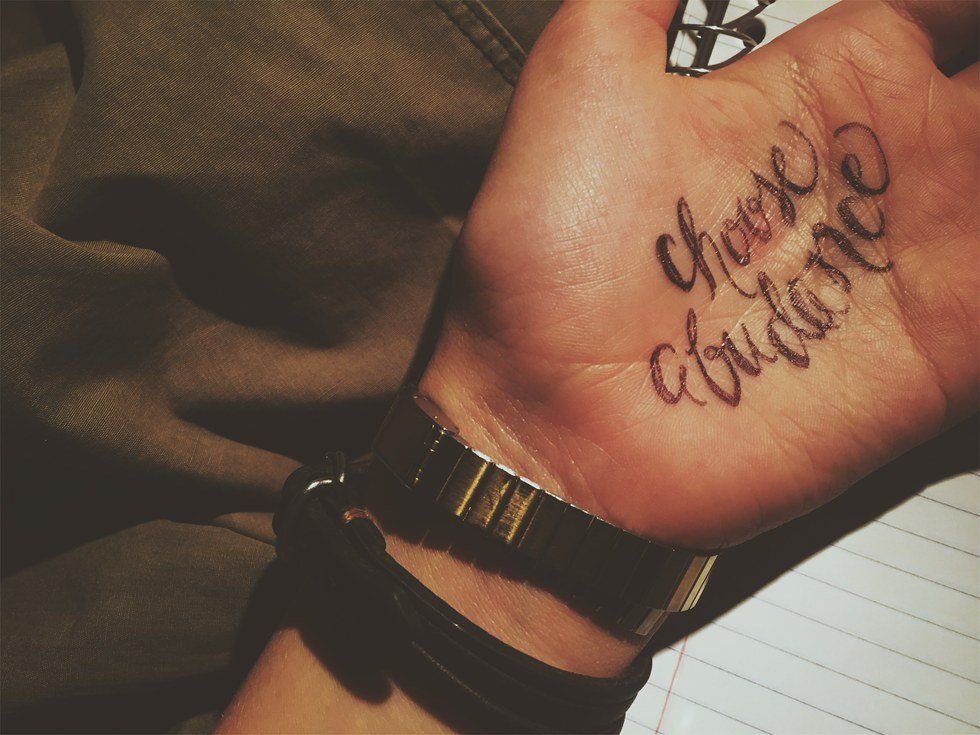 choose
abudance